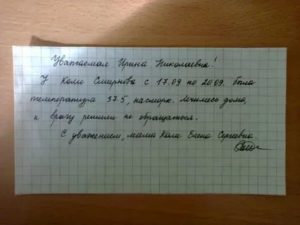 Уважаемая Ирина Николаевна!
У Коли Смирнова с 17.09 по 20.09. была
температура 37.5, насморк. Лечились дома,
к врачу решили не обращаться.
С уважением, мама Коли Елена Сергеевна